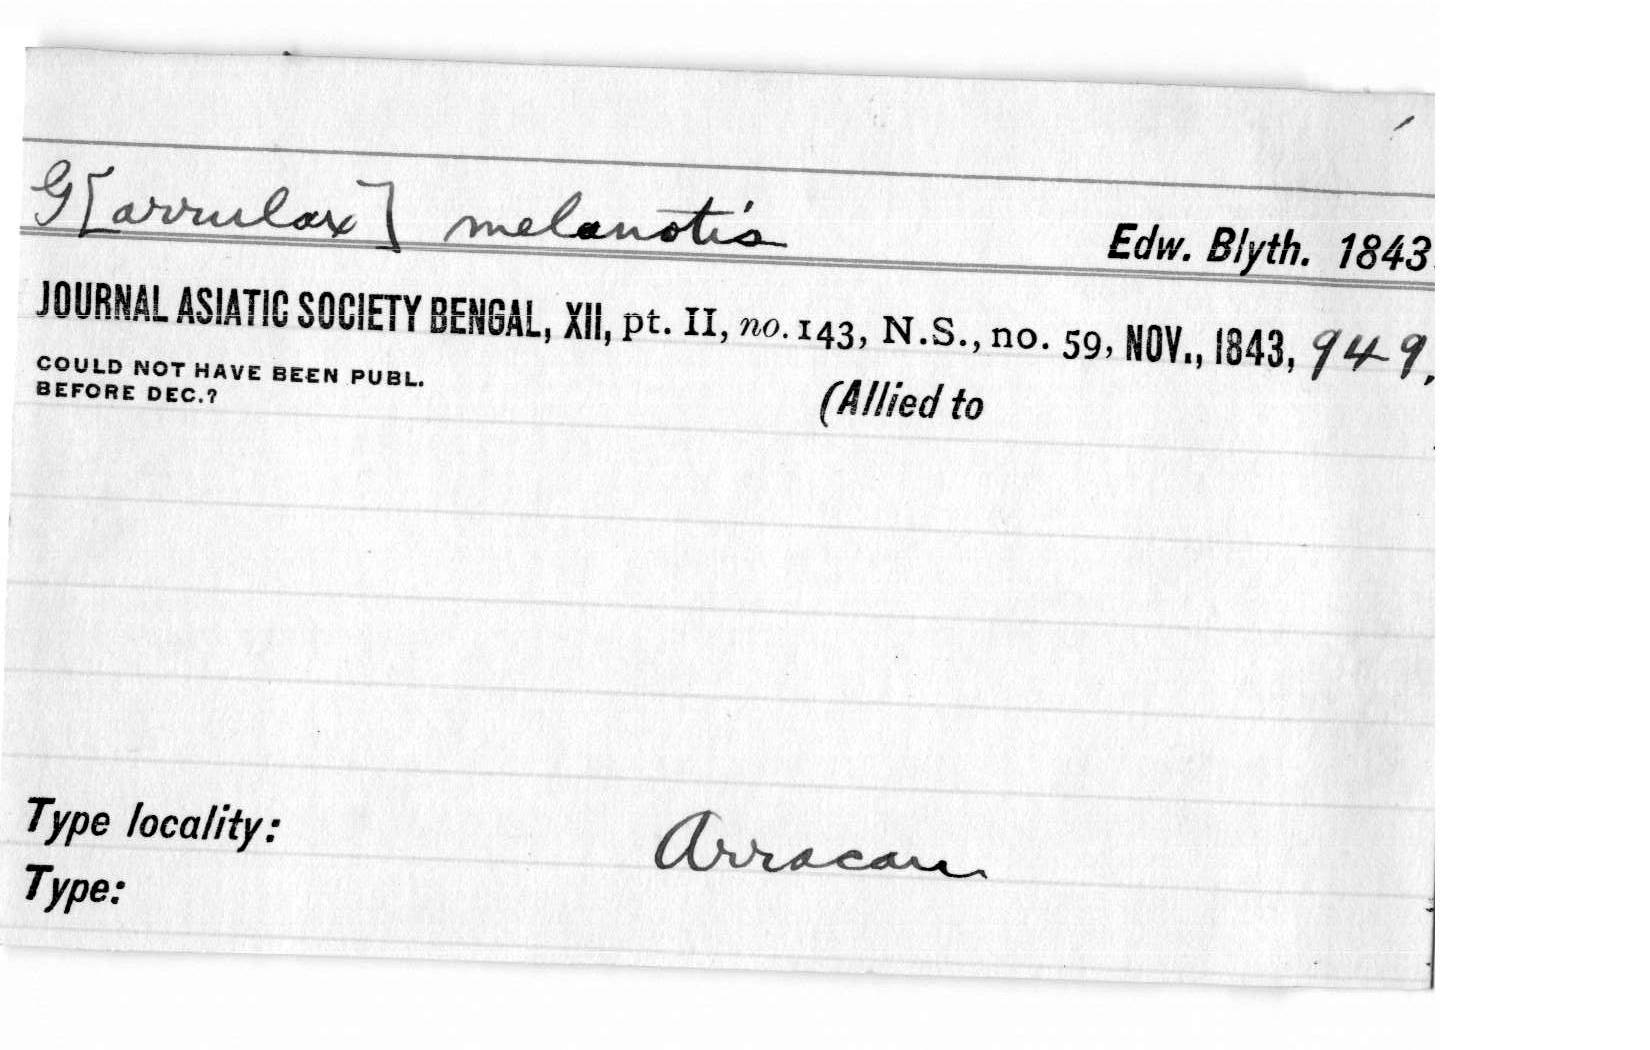 G[arrulax] melanotis
Edw. Blyth. 1843
JOURNAL ASIATIC SOCIETY BENGAL, XII, pt. II, no. 143, N.S., no. 59, NOV., 1843, 949,
COULD NOT HAVE BEEN PUBL.
BEFORE DEC.?
(Allied to
Type locality: Arracan
Type: